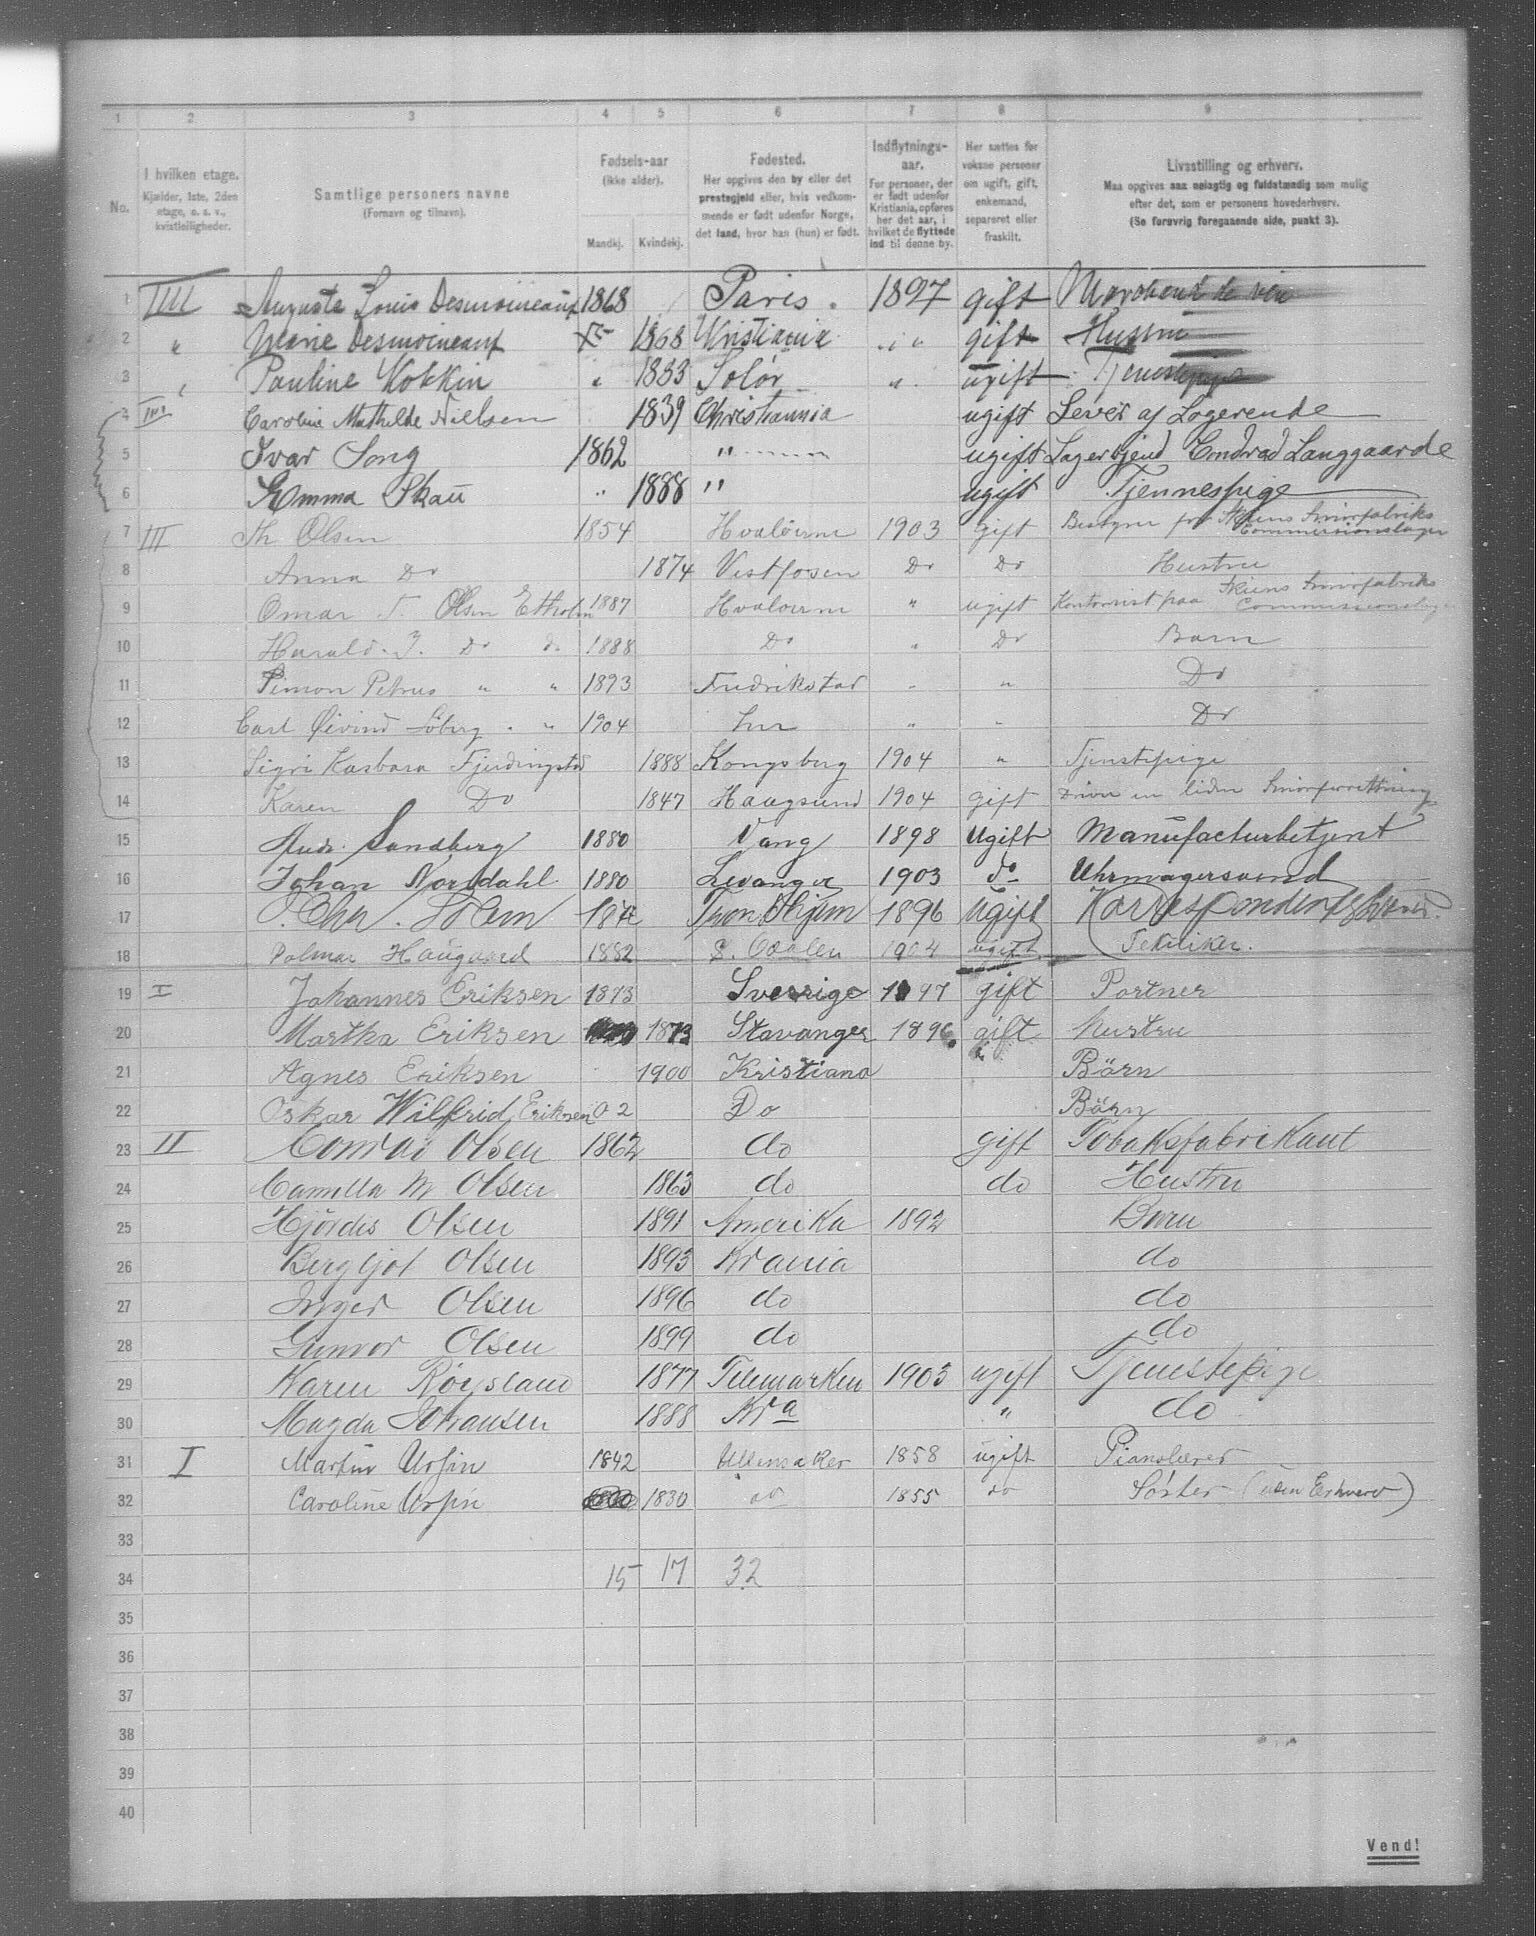 1 2 3 4 5 6 7 8 9
No.
I hvilken etage. Kjælder, 1ste, 2den etage, o. s. v., kvistleiligheder.
Samtlige personers navne (Fornavn og tilnavn).
Fødsels-aar (ikke alder). Mandkj. Kvindekj.
Fødested. Her opgives den by eller det prestegjeld eller, hvis vedkommende er født udenfor Norge, det land, hvor han (hun) er født.
Indflytnings-aar. For personer, der er født udenfor Kristiania, opføres her det aar, i hvilket de flyttede ind til denne by.
Her sættes for voksne personer om ugift, gift, enkemand, separeret eller fraskilt.
Livsstilling og erhverv. Maa opgives saa nøiagtig og fuldstændig som mulig efter det, som er personens hovederhverv. (Se forøvrig foregaaende side, punkt 3).
1 IIII Auguste Louis Desmoineaux 1868 Paris. 1897 gift Marchand de vin
2 " Marie Desmoineaux 1868 Kristiania " " gift Hustru
3 " Pauline Kokkin " 1883 Solør " ugift Tjenestepige
4 III Caroline Mathilde Nielsen 1839 Christiannia ugift Lever af Logerende
5 Ivar Song 1862 " ugift Lagerbjend Condrad Langgaarde
6 Emma Skau " 1888 " ugift Tjennespige
7 III Th Olsen 1854 Hvaløerne 1903 gift Bestyrer for Skiens Smørfabriks Commissionslager
8 Anna Do 1874 Vestfosen Do Do Hustru
9 Omar T. Olsen Etholm 1887 Hvaløerne " ugift Kontorist paa Skiens Smørfabriks Commissionslager
10 Harald. J. Do do 1888 Do " Do Barn
11 Simon Petrus " " 1893 Fredrikstad " " Do
12 Carl Øivind Søberg " " 1904 her " " Do
13 Sigri Kasbara Fjerdingstad 1888 Kongsberg 1904 " Tjenstepige
14 Karen Do 1847 Haugsund 1904 gift Driver en liden Smørforretning
15 Andr. Sandberg 1880 Vang 1898 Ugift Manufacturbetjent
16 Johan Nordahl 1880 Levanger 1903 do Uhrmagersvend
17 Chr. Holm 187 Trondhjem 1896 Ugift Korrespondent
18 Palmar Haugaard 1882 S. Odalen 1904 ugift Tekniker.
19 I Johannes Eriksen 1873 Sverrige 1897 gift Portner
20 Martha Eriksen 1873 Stavanger 1896 gift hustru
21 Agnes Eriksen 1900 Kristiana Börn
22 Oskar Wilfrid Eriksen 02 Do Börn
23 II Conrad Olsen 1862 do gift Tobaksfabrikant
24 Camilla M Olsen 1863 do do Hustru
25 Hjördis Olsen 1891 Amerika 1892 Barn
26 Bergljot Olsen 1893 Krania do
27 Inger Olsen 1896 do do
28 Gunvor Olsen 1899 do do
29 Karen Röysland 1877 Telemarken 1903 ugift Tjenestepige
30 Magda Johansen 1888 Kra " do
31 I Martin Ursin 1842 Ullensaker 1858 ugift Pianolærer
32 Caroline Ursin 1830 do 1855 do Søster (uden Erhverv)
33
34 15 17 32
35
36
37
38
39
40
Vend!